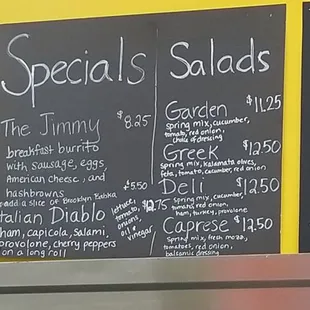 Specials
The Jimmy $8.25
breakfast burrito
with sausage, eggs,
American cheese, and
hashbrowns
add a slice of Brooklyn Babka $5.50
Italian Diablo $12.75
ham, capicola, salami,
provolone, cherry peppers
on a long roll
lettuce,
tomato,
onions,
oil &
vinegar
Salads
Garden $11.25
spring mix, cucumber,
tomato, red onion,
choice of dressing
Greek $12.50
spring mix, kalamata olives,
feta, tomato, cucumber, red onion
Deli $12.50
spring mix, cucumber,
tomato, red onion,
ham, turkey, provolone
Caprese $12.50
Spring mix, fresh mozz,
tomatoes, red onion,
balsamic dressing